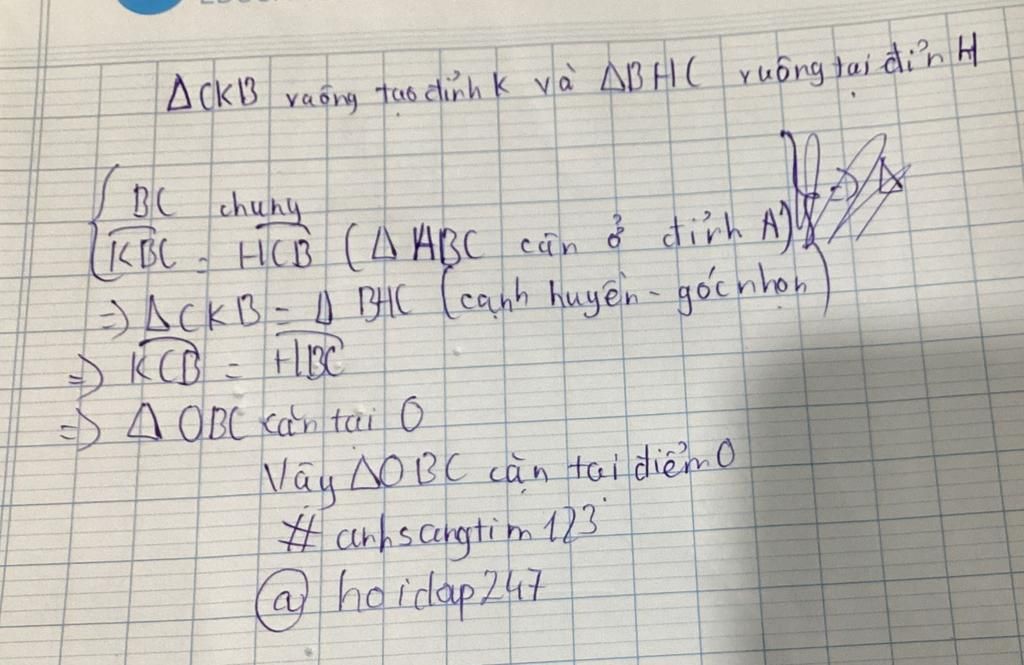 ΔCKB vuông tại đỉnh K và ΔBHC vuông tại đỉn H
BC chung
KBC = HCB (ΔABC cân ở đỉnh A)
=> ΔCKB = Δ BHC (cạnh huyền - góc nhọn)
=> KCB = HBC
=> Δ OBC cân tai O
Vây ΔOBC cận tai điểm O
# anhsangtim123
@ hoidap247